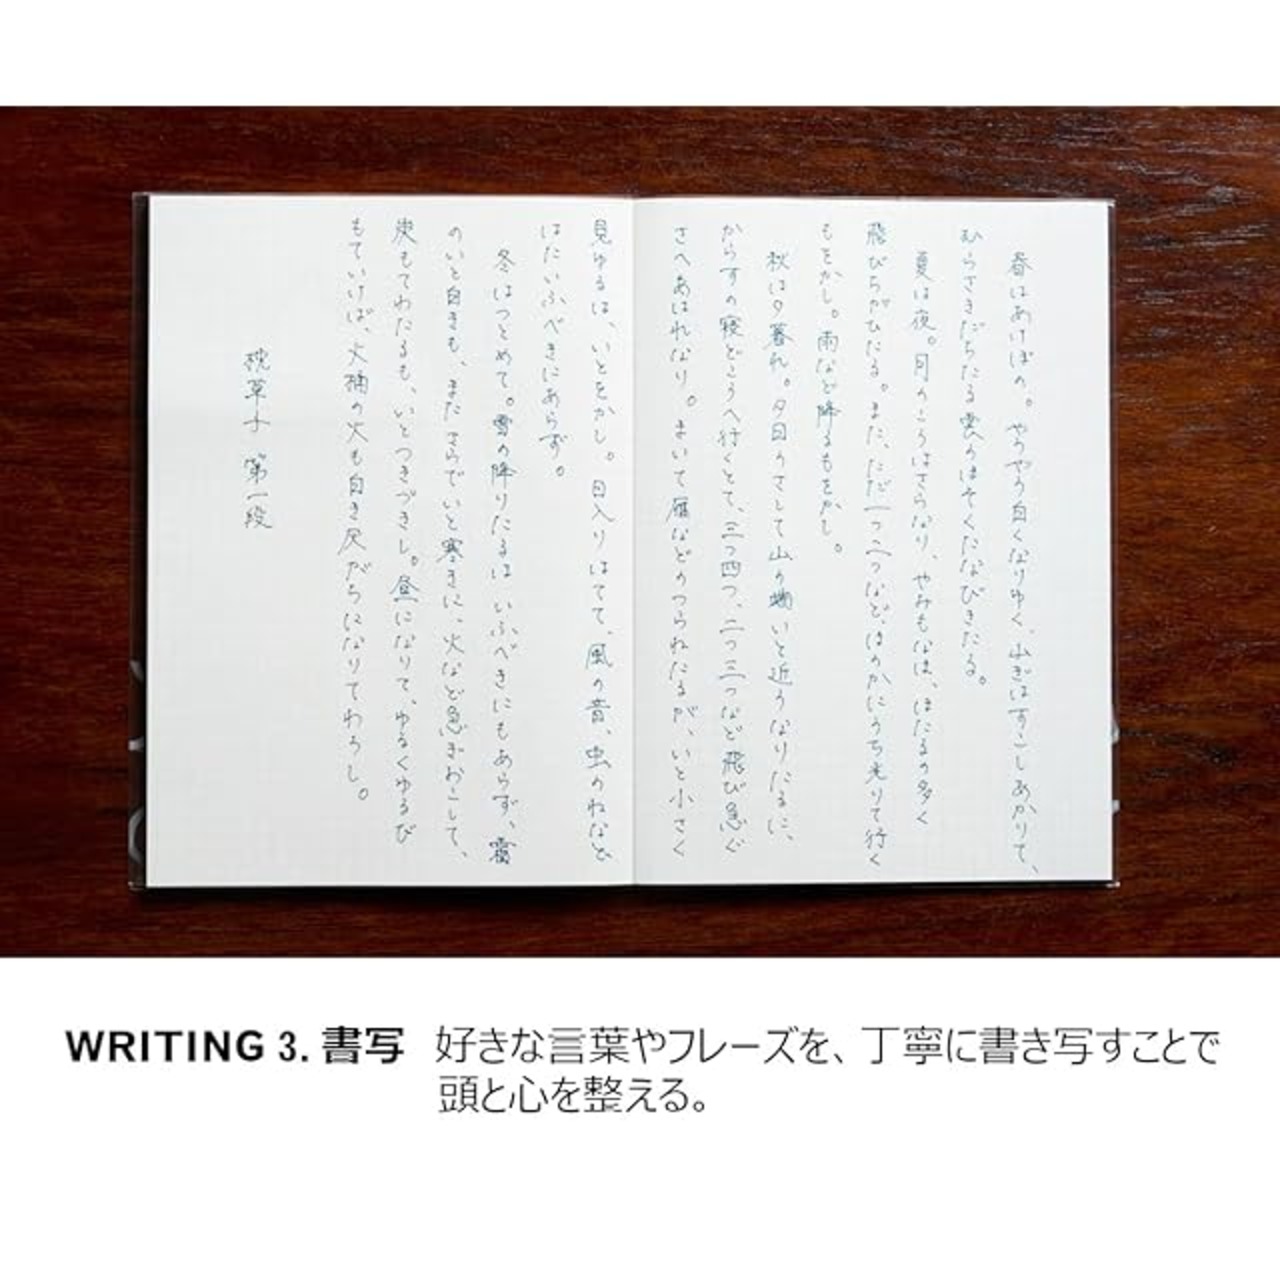 春はあけぼの。やうやう白くなりゆく、山ぎはすこしあかりて、
むらさきだちたる雲のほそくたなびきたる。
夏は夜。月のころはさらなり、やみもなほ、ほたるの多く
飛びちがひたる。また、ただ一つ二つなど、ほのかにうち光りて行く
もをかし。雨など降るもをかし。
秋は夕暮れ。夕日のさして山の端いと近うなりたるに、
からすの寝どころへ行くとて、三つ四つ、二つ三つなど飛び急ぐ
さへあはれなり。まいて雁などのつらねたるが、いと小さく
見ゆるは、いとをかし。日入りはてて、風の音、虫のねなど
はたいふべきにあらず。
冬はつとめて。雪の降りたるはいふべきにもあらず、霜
のいと白きも、またさらでいと寒きに、火など急ぎおこして、
炭もてわたるも、いとつきづきし。昼になりて、ゆるくゆるび
もていけば、火桶の火も白き灰がちになりてわろし。
枕草子 第一段
WRITING 3. 書写 好きな言葉やフレーズを、丁寧に書き写すことで
頭と心を整える。